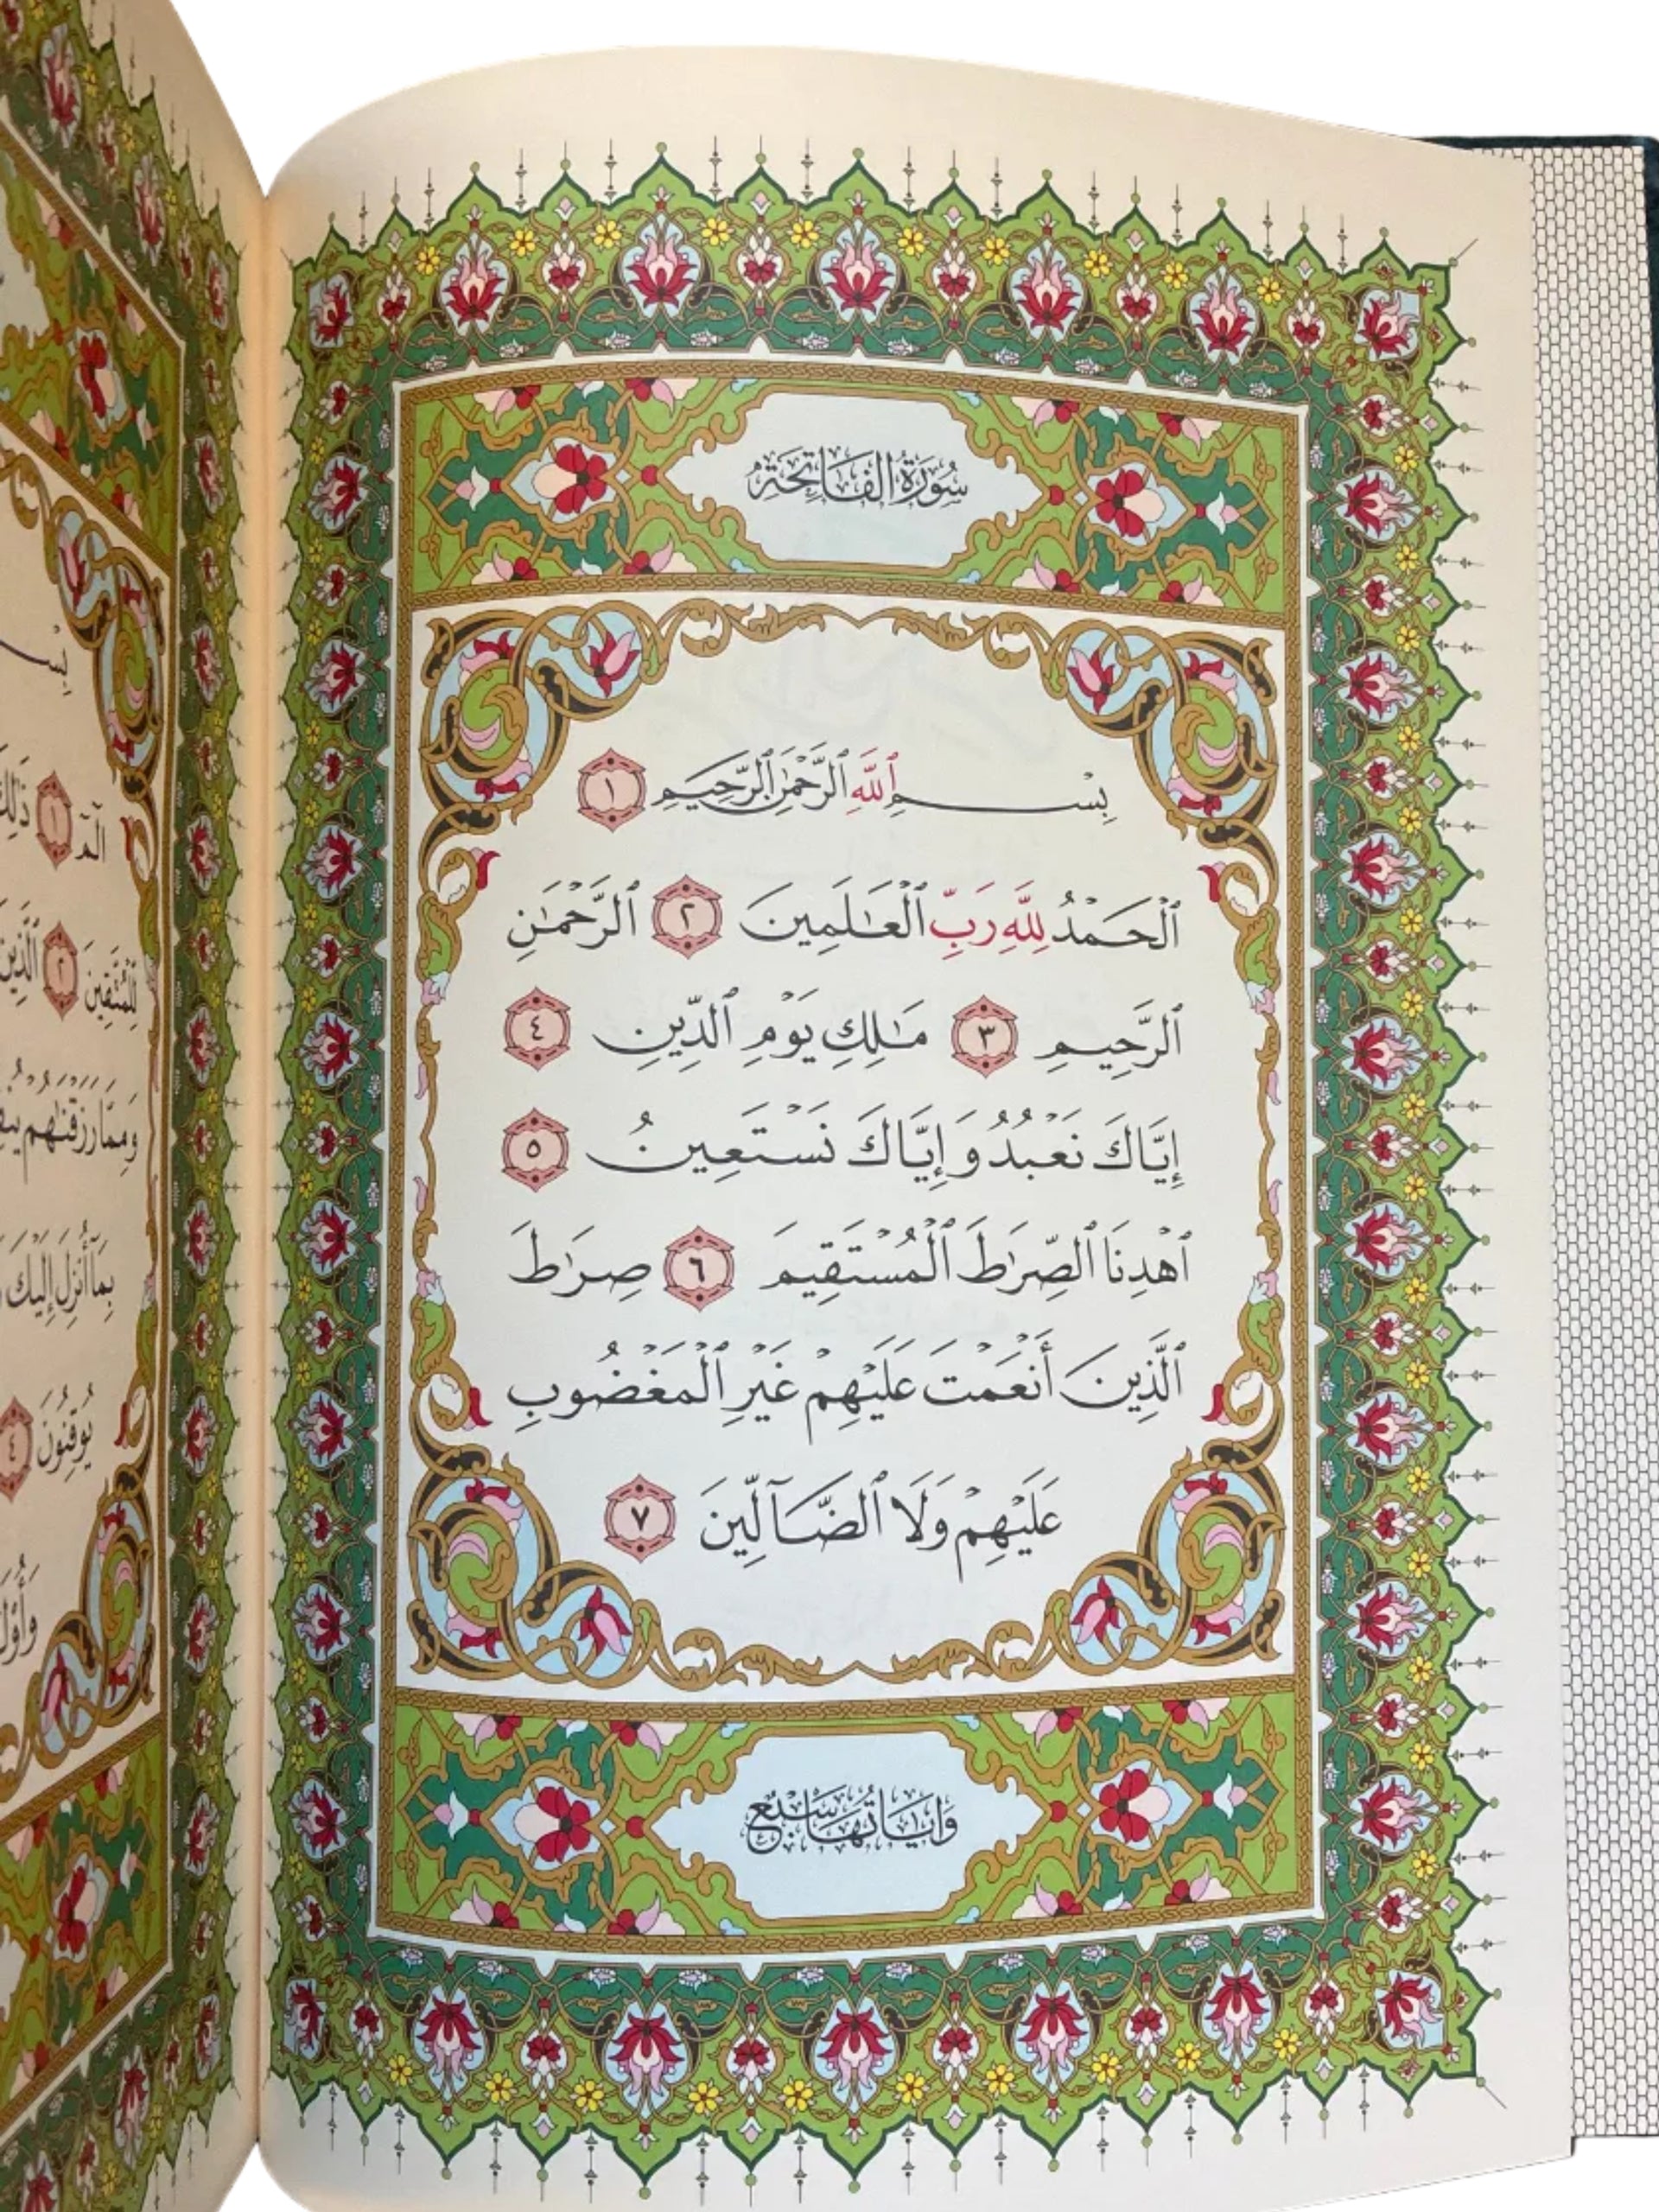 سُورَةُ الْفَاتِحَةِ
بِسْمِ ٱللَّهِ ٱلرَّحْمَٰنِ ٱلرَّحِيمِ ١
ٱلْحَمْدُ لِلَّهِ رَبِّ ٱلْعَٰلَمِينَ ٢ ٱلرَّحْمَٰنِ
ٱلرَّحِيمِ ٣ مَٰلِكِ يَوْمِ ٱلدِّينِ ٤
إِيَّاكَ نَعْبُدُ وَإِيَّاكَ نَسْتَعِينُ ٥
ٱهْدِنَا ٱلصِّرَٰطَ ٱلْمُسْتَقِيمَ ٦ صِرَٰطَ
ٱلَّذِينَ أَنْعَمْتَ عَلَيْهِمْ غَيْرِ ٱلْمَغْضُوبِ
عَلَيْهِمْ وَلَا ٱلضَّآلِّينَ ٧
وَآيَاتُهَا سَبْعٌ
الٓمٓ ١
لِّلْمُتَّقِينَ ٢ ٱلَّذِينَ
وَمِمَّا رَزَقْنَٰهُمْ
بِمَآ أُنزِلَ إِلَيْكَ
يُوقِنُونَ ٤